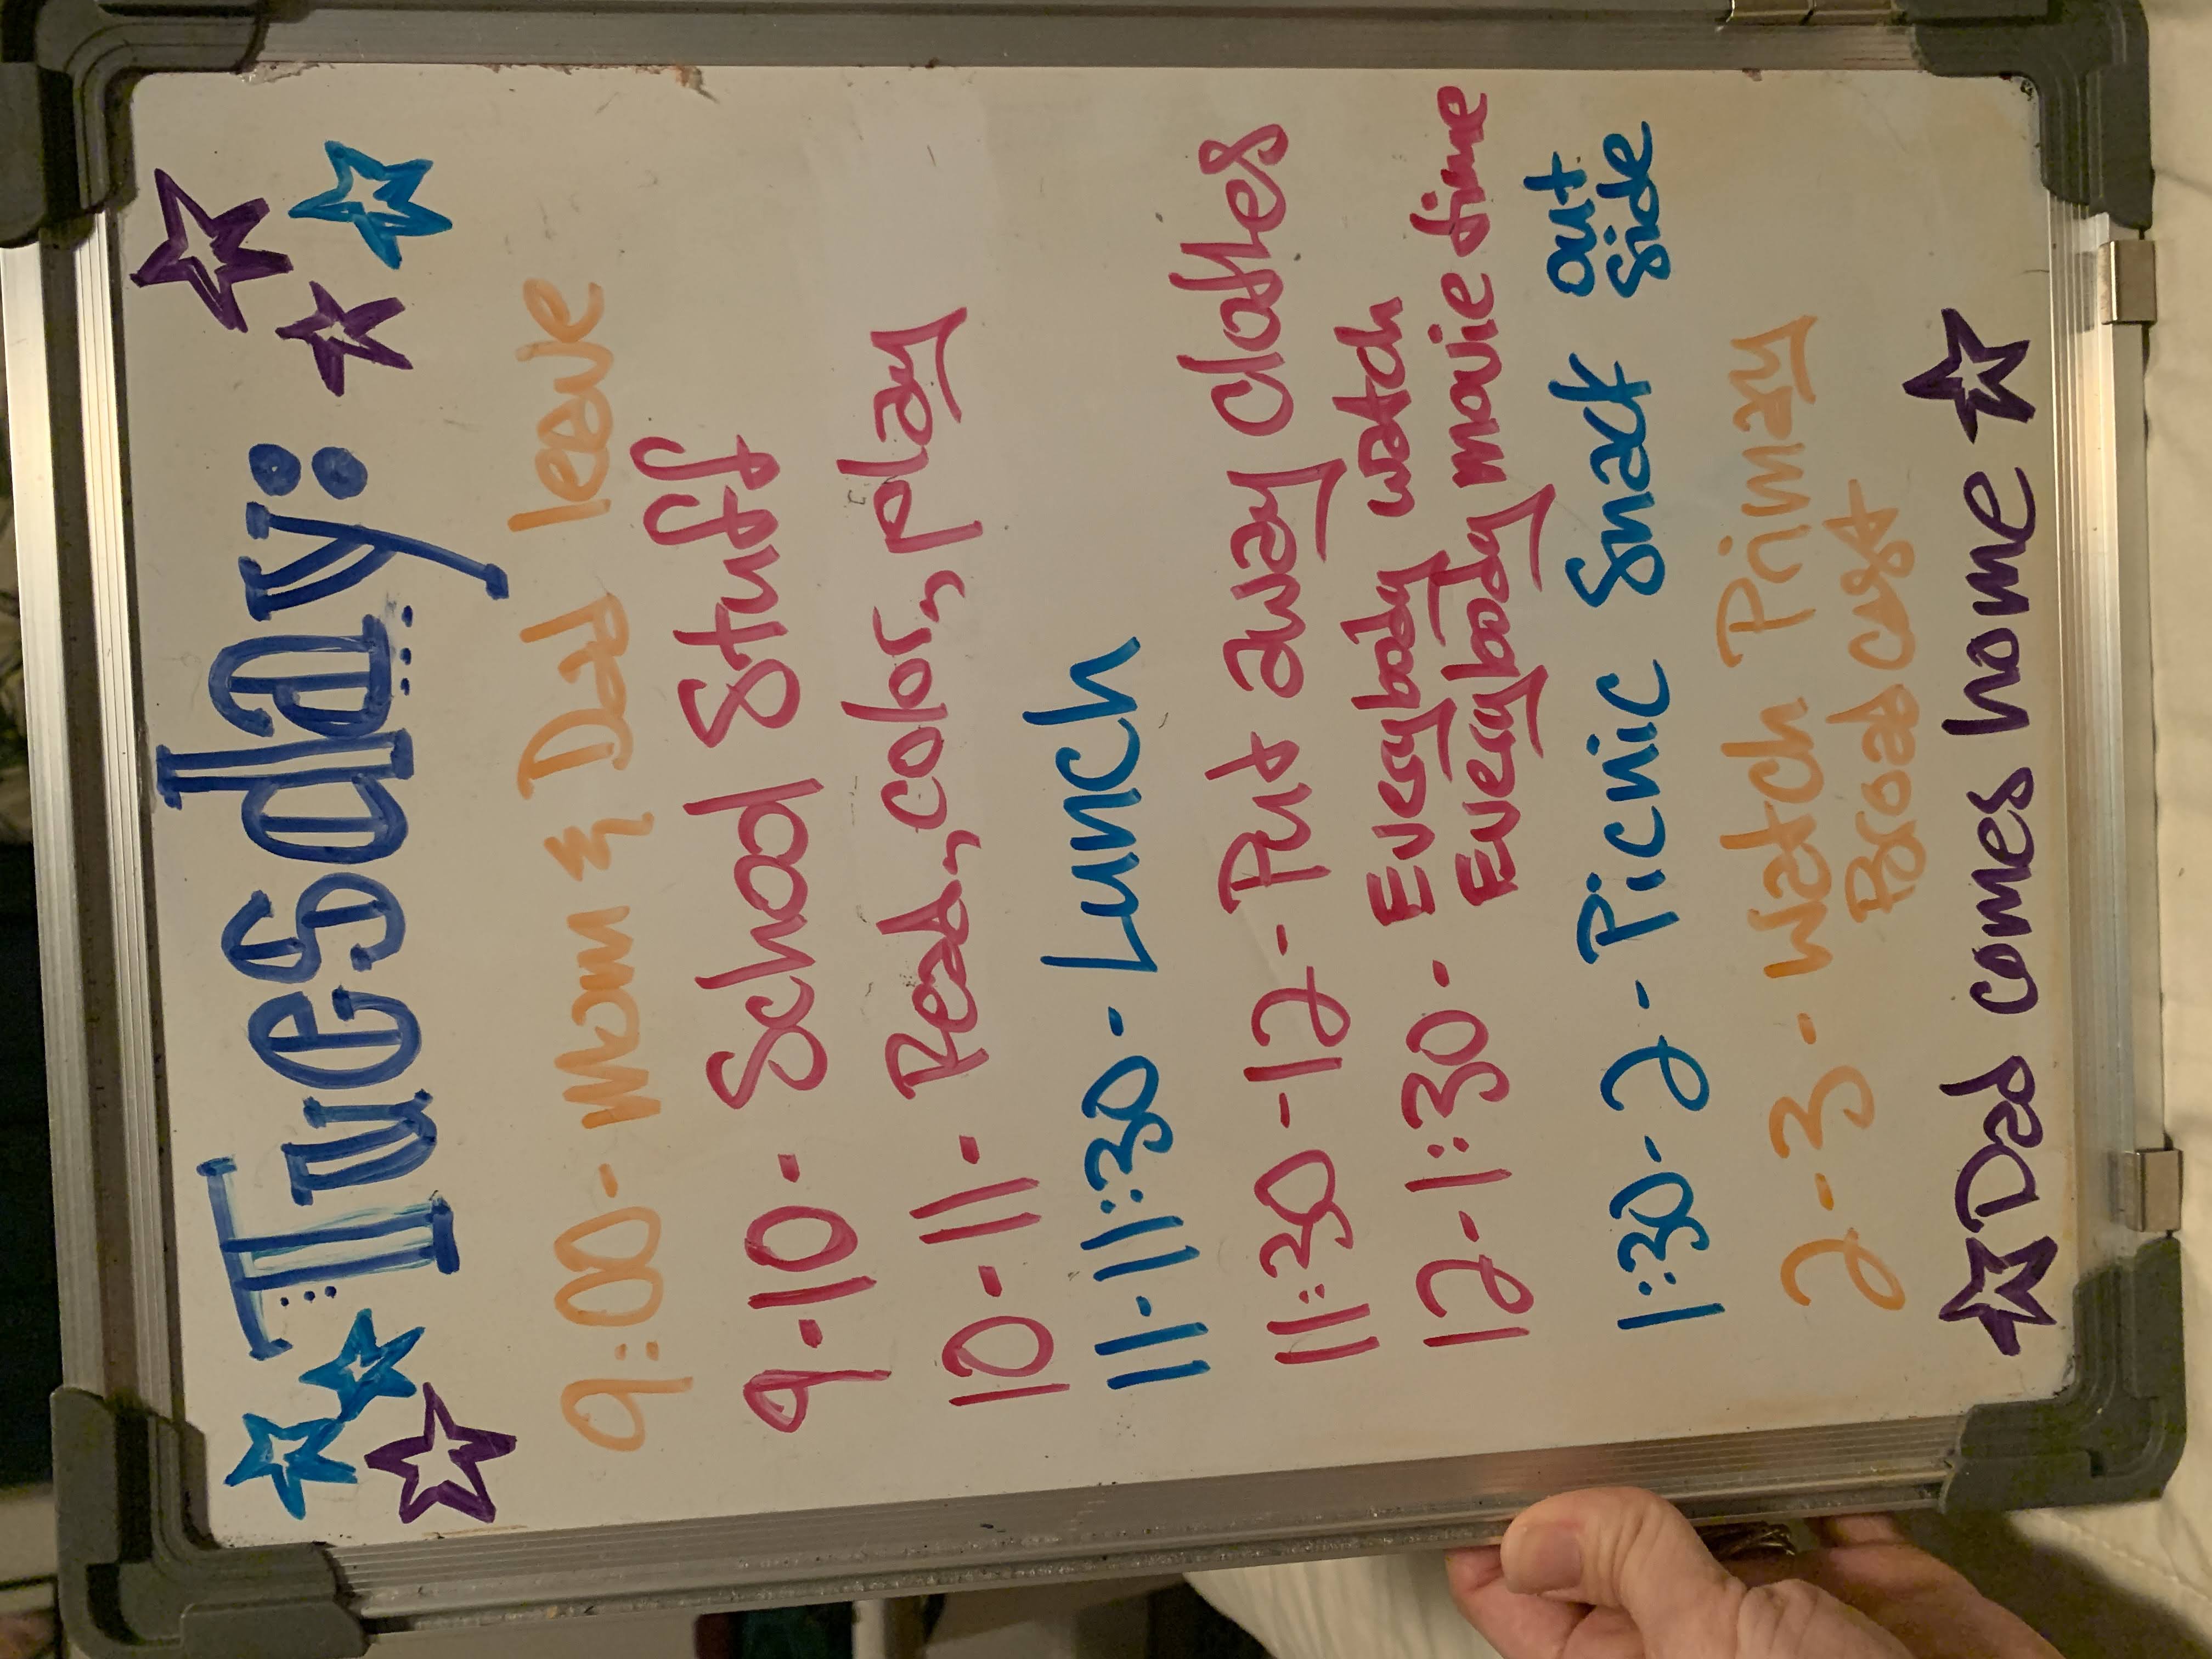 Tuesday:
9:00 - Mom & Dad leave
9-10 - School Stuff
10-11 - Read, color, play
11-11:30 - Lunch
11:30-12 - Put away clothes
12-1:30 - Everybody watch
Everybody movie time
1:30-2 - Picnic Snack out
side
2-3 - Watch Primary
Broadcast
Dad comes home